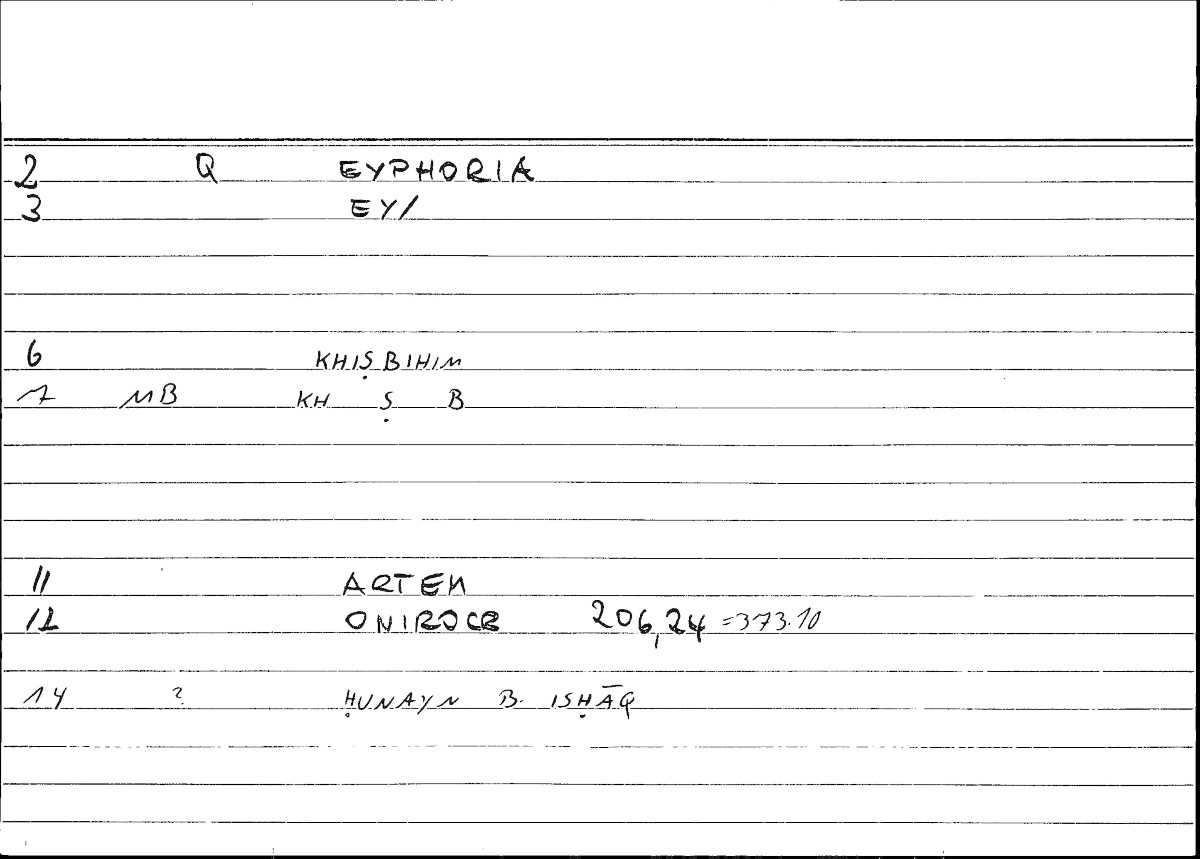 2 Q EYPHORIA
3 EY/
6 KHIṢBIHIM
7 MB KH Ṣ B
11 ARTEM
12 ONIROCR 206,24 =373.10
14 ? ḤUNAYN B. ISḤĀQ